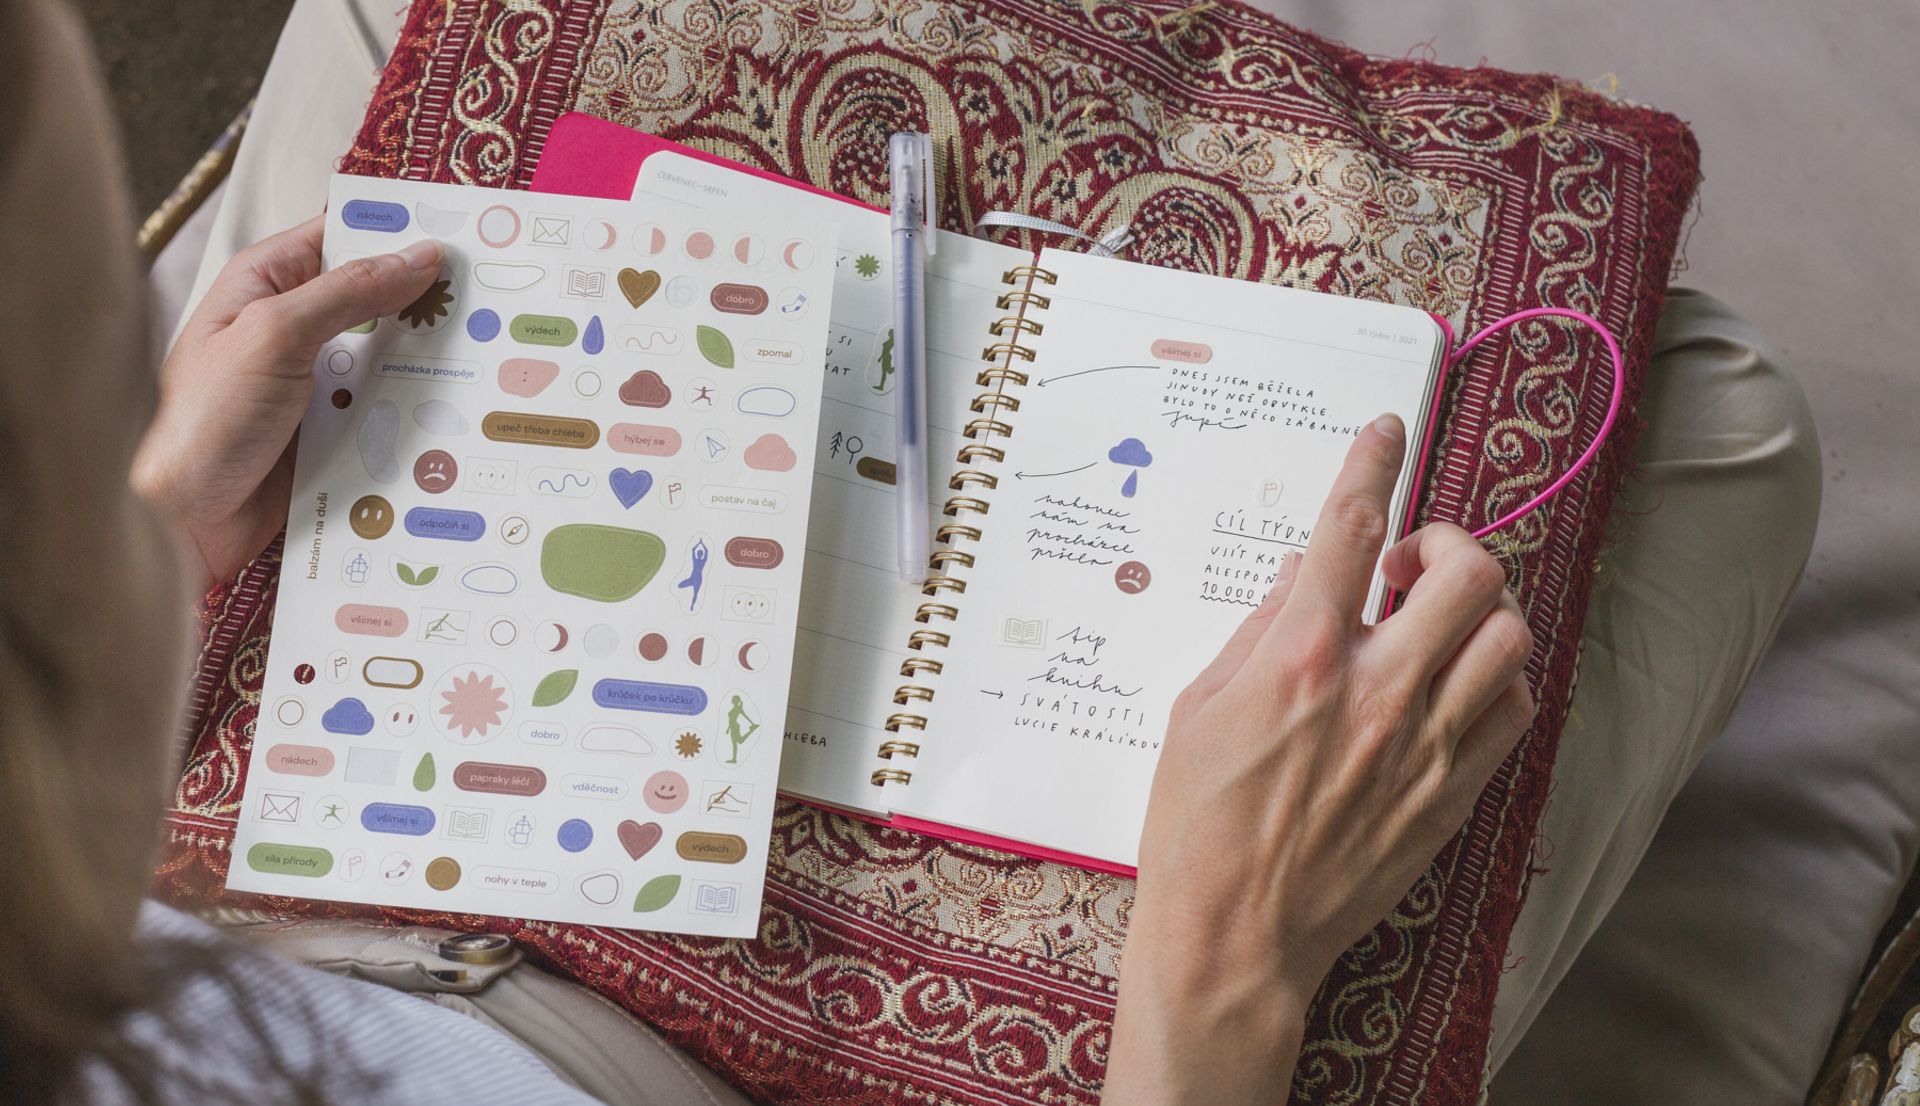 nádech
dobro
výdech
zpomal
procházka prospěje
upeč třeba chleba
hýbej se
postav na čaj
odpočiň si
dobro
balzám na duši
všímej si
krůček po krůčku
dobro
nádech
paprsky léčí
vděčnost
všímej si
výdech
síla přírody
nohy v teple
ČERVENEC–SRPEN
SI
HLEBA
30. týden | 2021
všímej si
DNES JSEM BĚŽELA
JINUDY NEŽ OBVYKLE.
BYLO TO O NĚCO ZÁBAVNĚ
Jupí
nakonec
nám na
procházce
pršelo
CÍL TÝDN
UJÍT KA
ALESPOŇ
10 000
tip
na
knihu
SVÁTOSTI
LUCIE KRÁLÍKOV